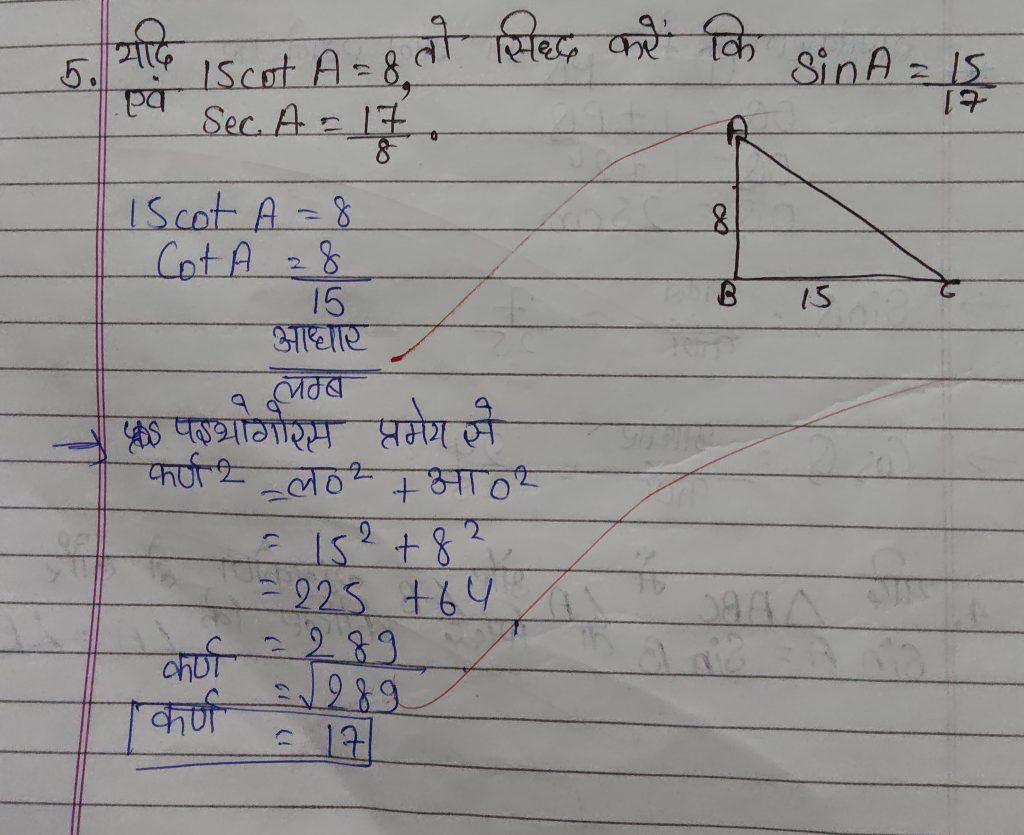 5. यदि 15cot A = 8, तो सिद्ध करें कि Sin A = 15/17
एवं Sec. A = 17/8 .
A
8
B 15 C
15cot A = 8
Cot A = 8
15
आधार
लम्ब
→ पइथोगोरस प्रमेय से
कर्ण2 = ल०² + आ०²
= 15² + 8²
= 225 + 64
= 289
कर्ण = √289
कर्ण = 17